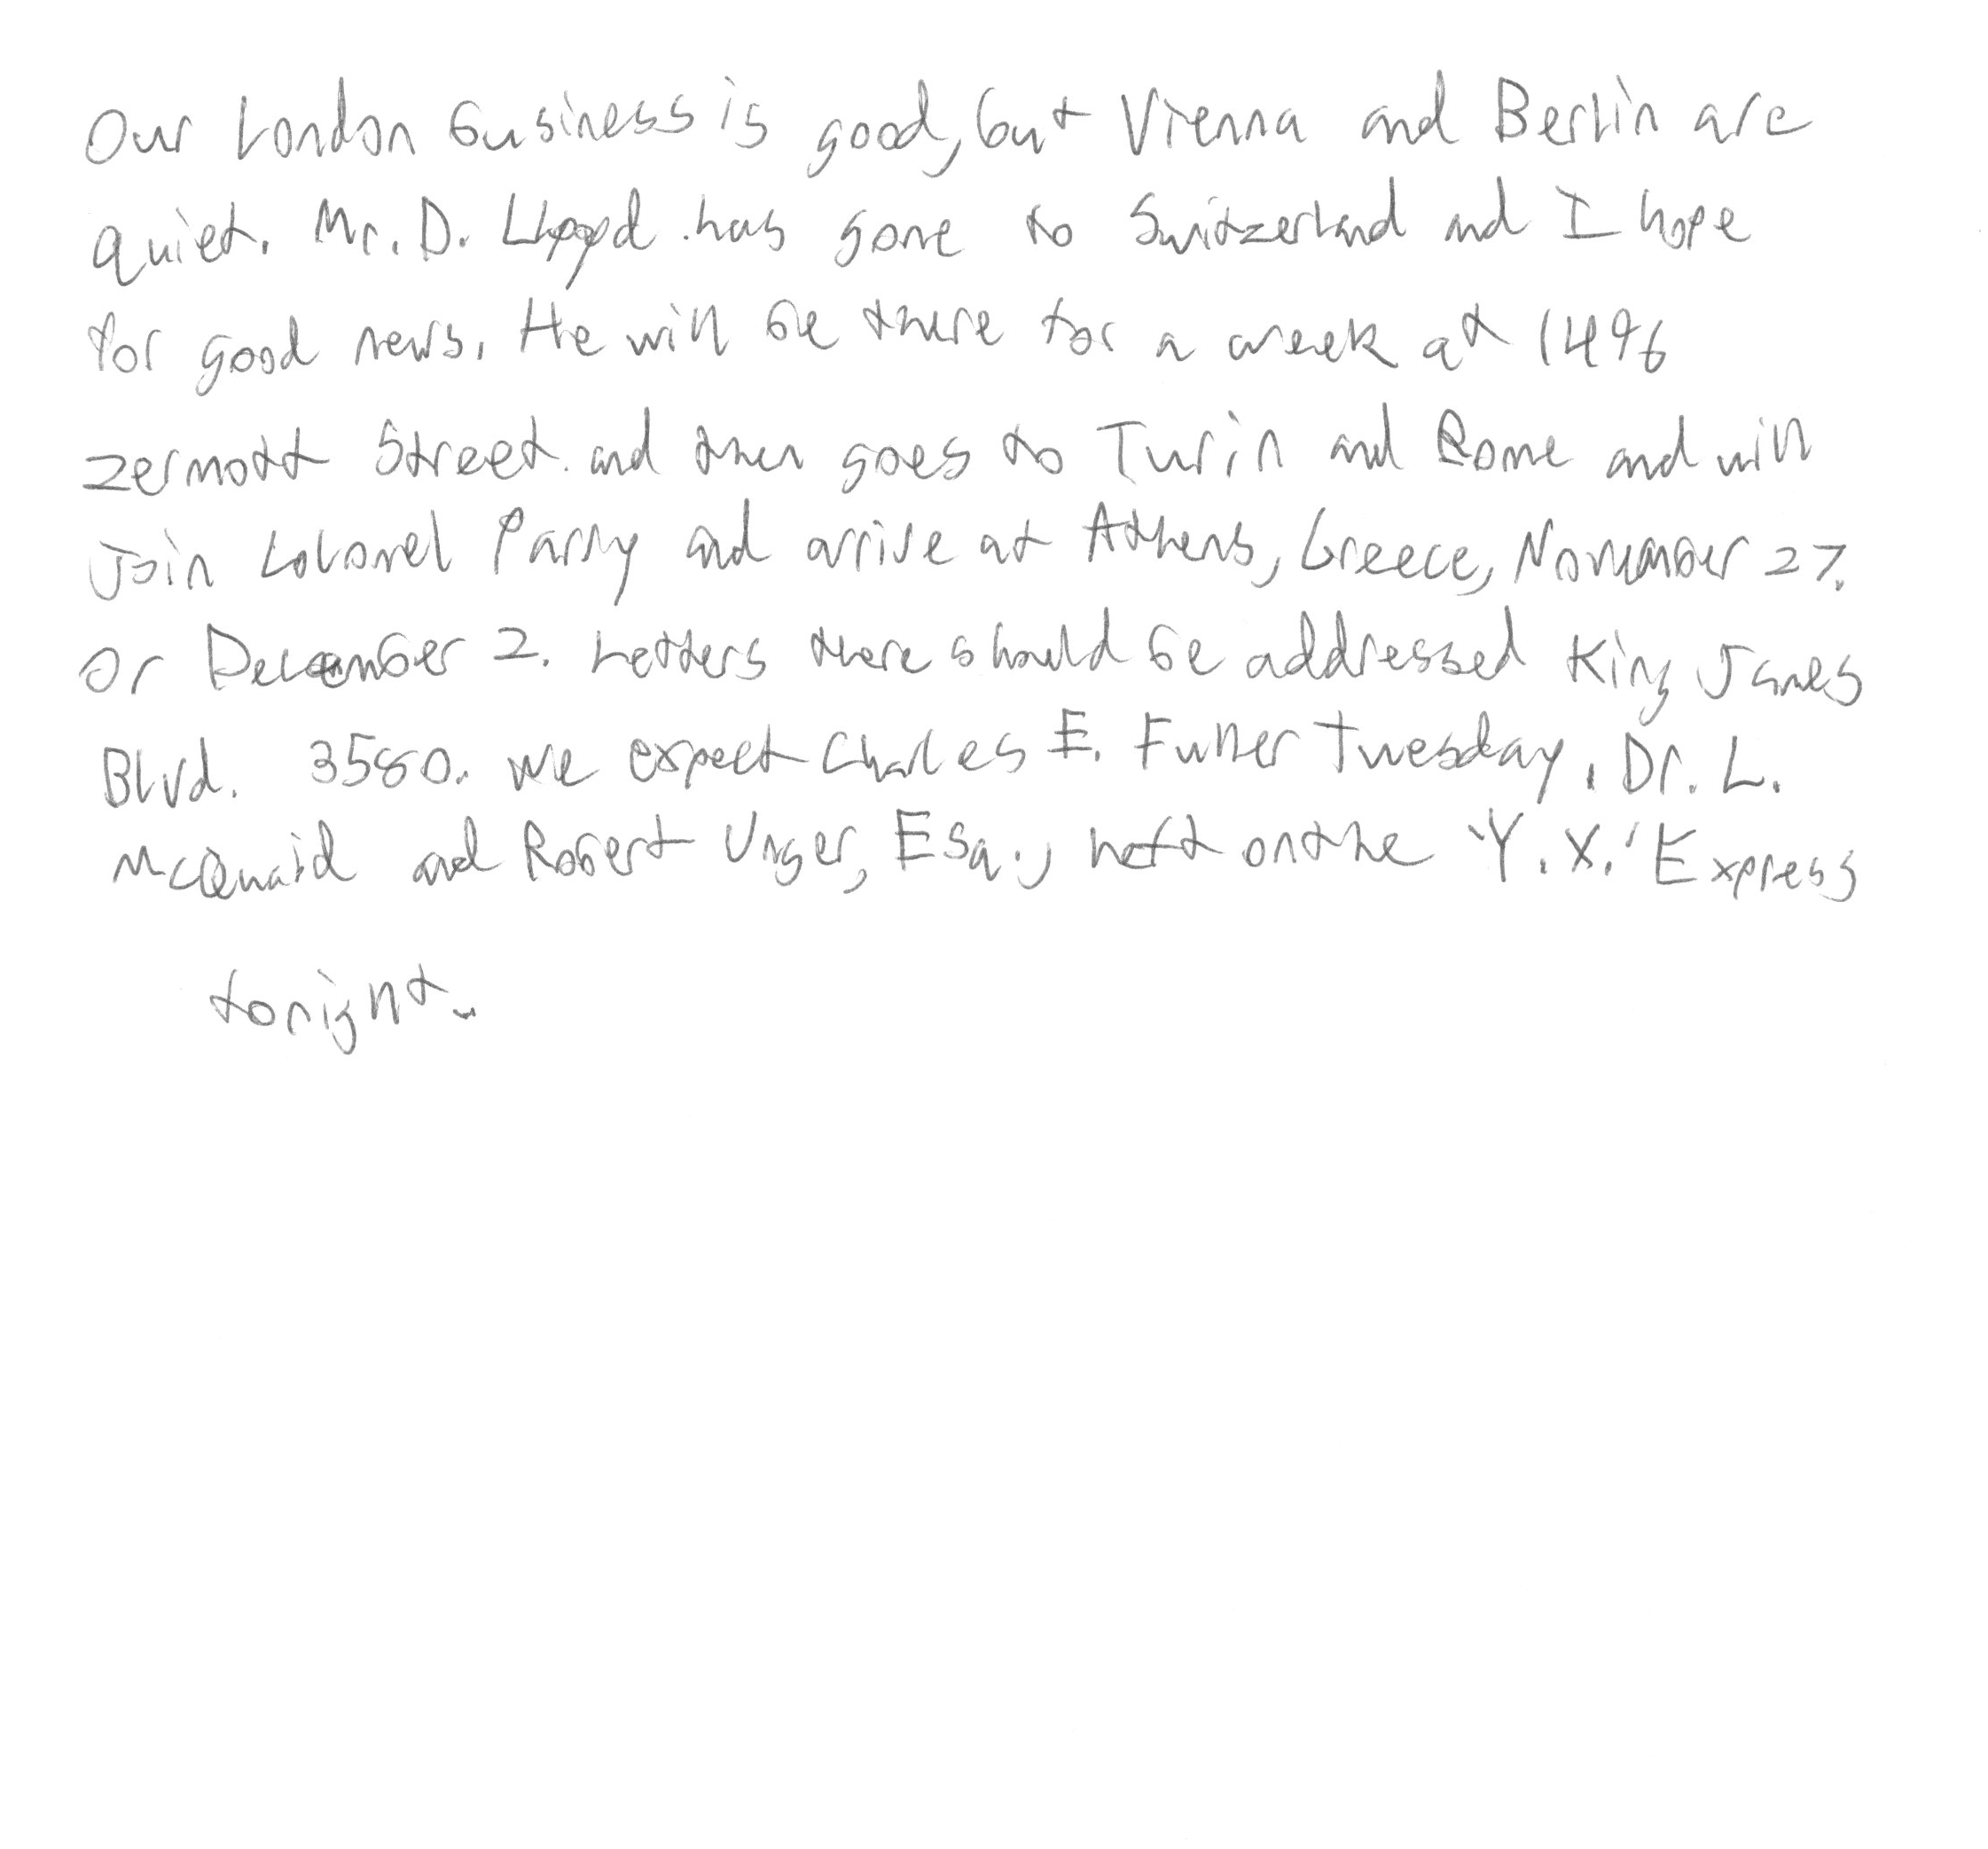 Our London business is good, but Vienna and Berlin are
quiet. Mr. D. Lloyd has gone to Switzerland and I hope
for good news. He will be there for a week at 1496
Zermott Street and then goes to Turin and Rome and will
Join Colonel Parry and arrive at Athens, Greece, November 27.
or December 2. Letters there should be addressed King James
Blvd. 3580. We expect Charles E. Fuller Tuesday. Dr. L.
McQuaid and Robert Unger, Esq., left on the 'Y.X.' Express
tonight.